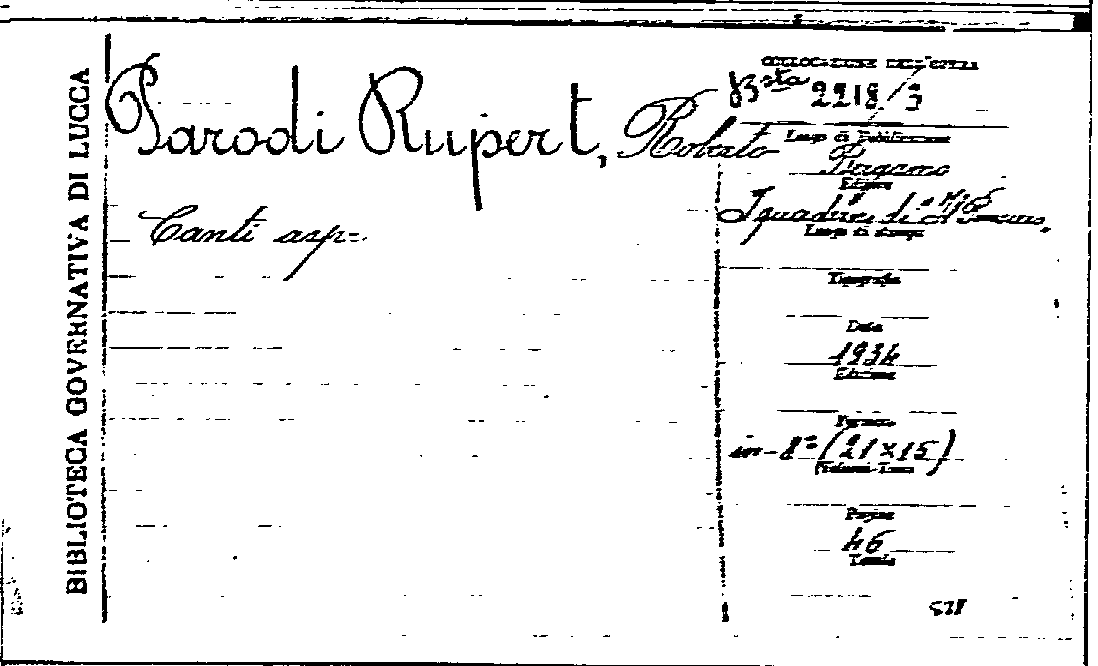 BIBLIOTECA GOVERNATIVA DI LUCCA
Parodi Rupert, Roberto
Canti asp=
COLLOCAZIONE DELL'OPERA
Bsta 2218/3
Luogo di Pubblicazione
Bergamo
Editore
di
Luogo di stampa
Tipografia
Data
1934
Edizione
Formato
in-8º (21×15)
Pagine
46